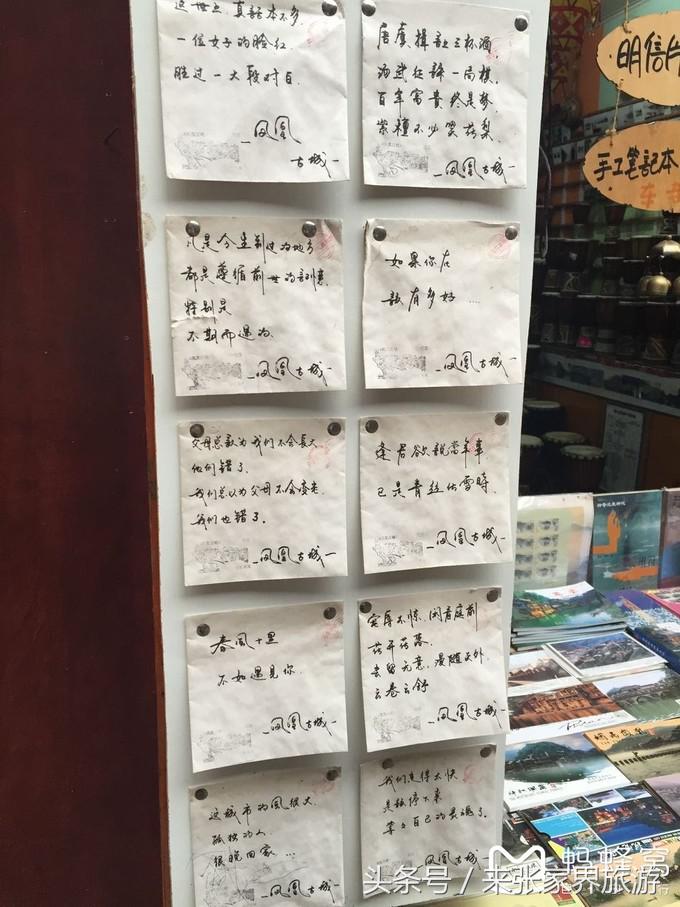 这世上真话本不多
一位女子的脸红
胜过一大段对白
凤凰
古城
唐虞揖让三杯酒,
汤武征诛一局棋,
百年富贵终是梦,
紫檀不必笑花梨.
凤凰古城
凡是今生到过的地方
都是遵循前世的刻意
特别是
不期而遇的
凤凰古城
如果你在
该有多好....
凤凰古城
父母总认为我们不会长大
他们错了.
我们总以为父母不会变老
我们也错了.
凤凰古城
逢君欲說當年事
已是青丝化雪時
凤凰古城
春風十里
不如遇见你
凤凰古城
宠辱不惊,闲看庭前
花开花落
去留无意,漫随天外
云卷云舒
凤凰古城
这城市的風很大
孤独的人
很晚回家...
凤凰古城
我们走得太快
是该停下来
等等自己的灵魂了.
凤凰古城
明信片
手工笔记本
蚂蜂窝
头条号 / 来张家界旅游